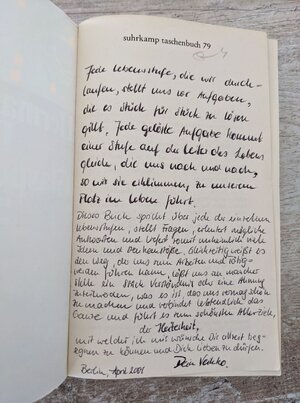 suhrkamp taschenbuch 79
Jede Lebensstufe, die wir durch-
laufen, stellt uns vor Aufgaben,
die es Stück für Stück zu lösen
gilt. Jede gelöste Aufgabe kommt
einer Stufe auf der Leiter des Lebens
gleich, die uns nach und nach,
so wir sie erklimmen, zu unserem
Platz im Leben führt.
Dieses Buch spricht über jede der einzelnen
Lebensstufen, stellt Fragen, erörtert mögliche
Antworten und liefert somit unheimlich viele
Ideen und Denkanstöße. Gleichzeitig weißt es
den Weg, die uns zum Arbeiten und Tätig-
werden führen kann, läßt uns an mancher
Stelle ein Stück Verständnis oder eine Ahnung
was es ist, das uns
zu machen und verbindet letztendlich das
Ganze und führt es zum schönsten Aller-Ziele,
der Heiterkeit,
mit welcher ich mir wünsche Dir öfters be-
gegnen zu können und Dich lieben zu dürfen.
Berlin, April 2001 Dein